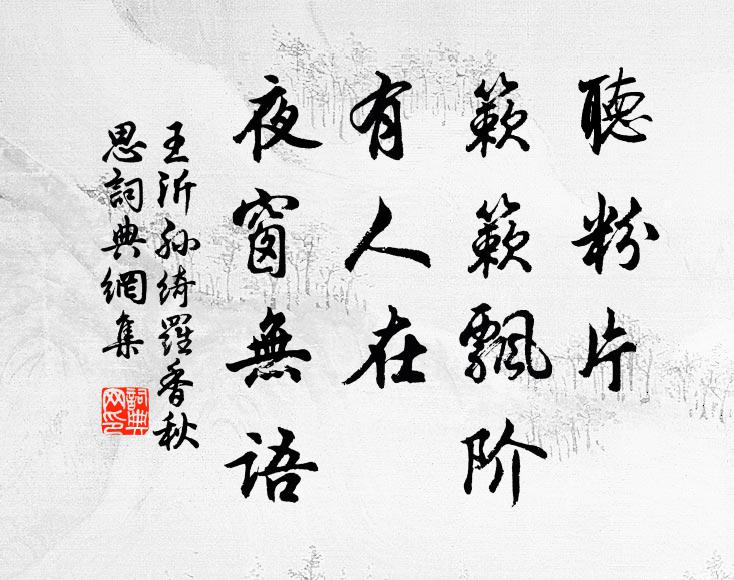 聽粉片
簌簌飄阶
有人在
夜窗無语
王沂孙绮羅香秋
思詞典網集
詞典网印